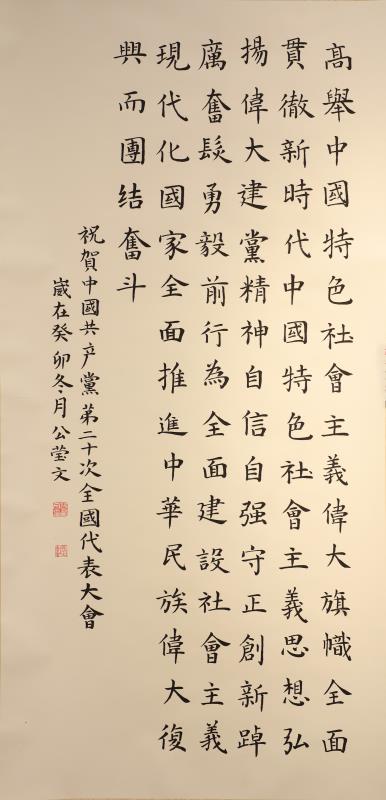 高舉中國特色社會主義偉大旗幟全面
貫徹新時代中國特色社會主義思想弘
揚偉大建黨精神自信自强守正創新踔
厲奮髮勇毅前行為全面建設社會主義
現代化國家全面推進中華民族偉大復
興而團结奮斗
祝賀中國共产黨第二十次全國代表大會
歲在癸卯冬月公瑩文